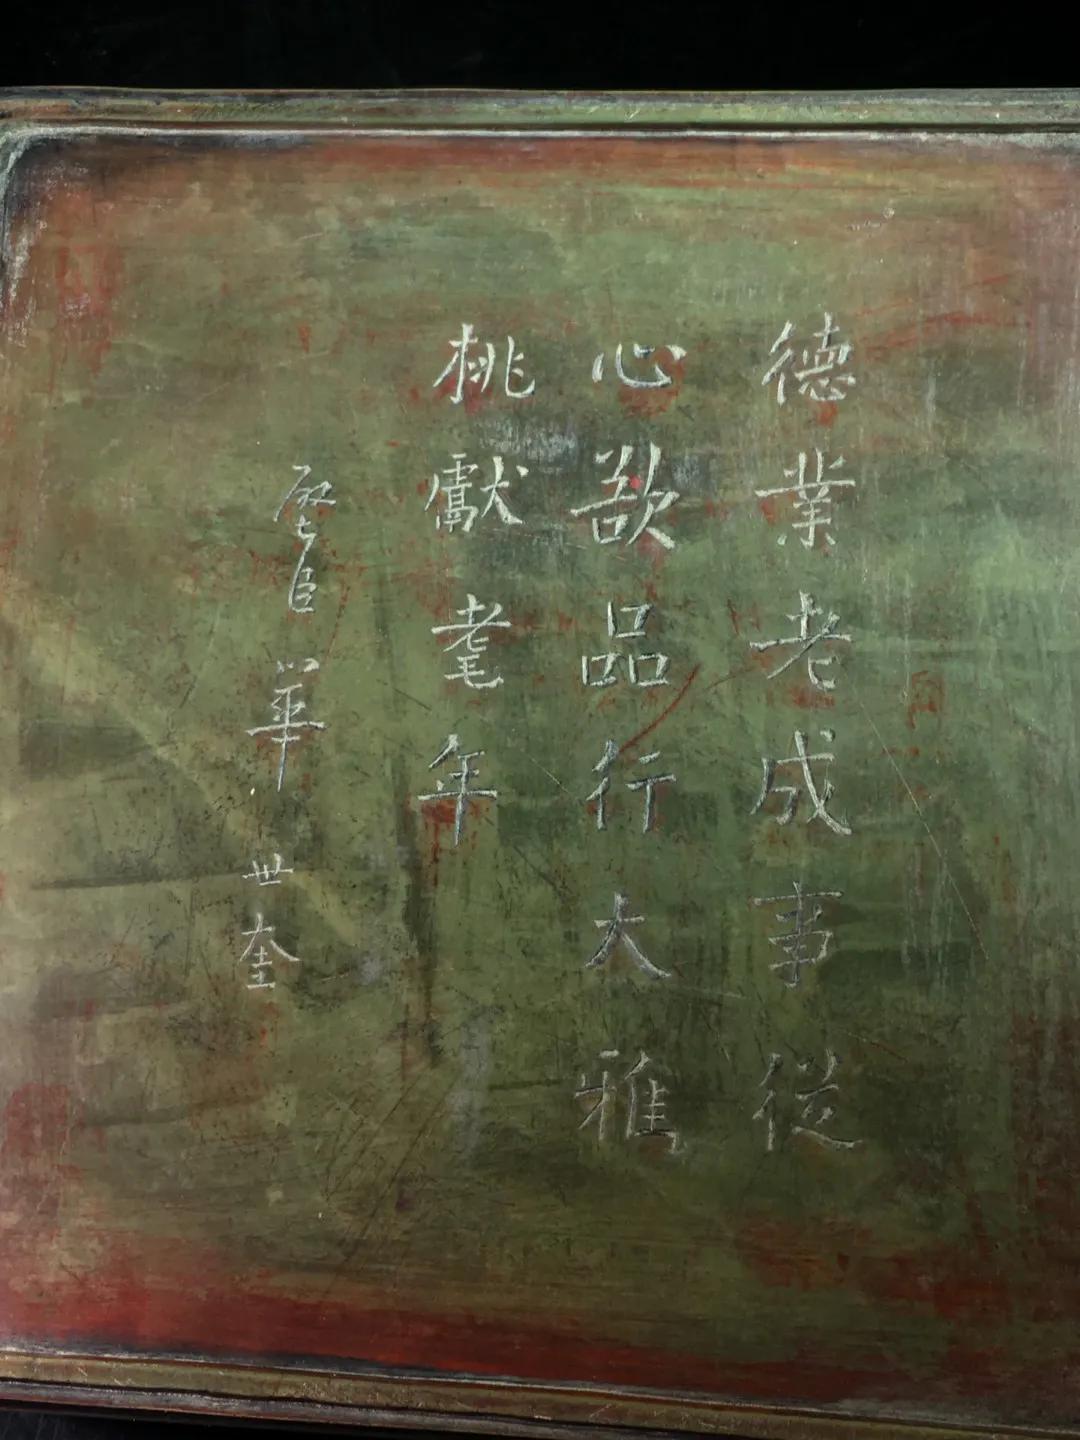 德業老成事從
心欲品行大雅
桃獻耄年
璧臣華世奎